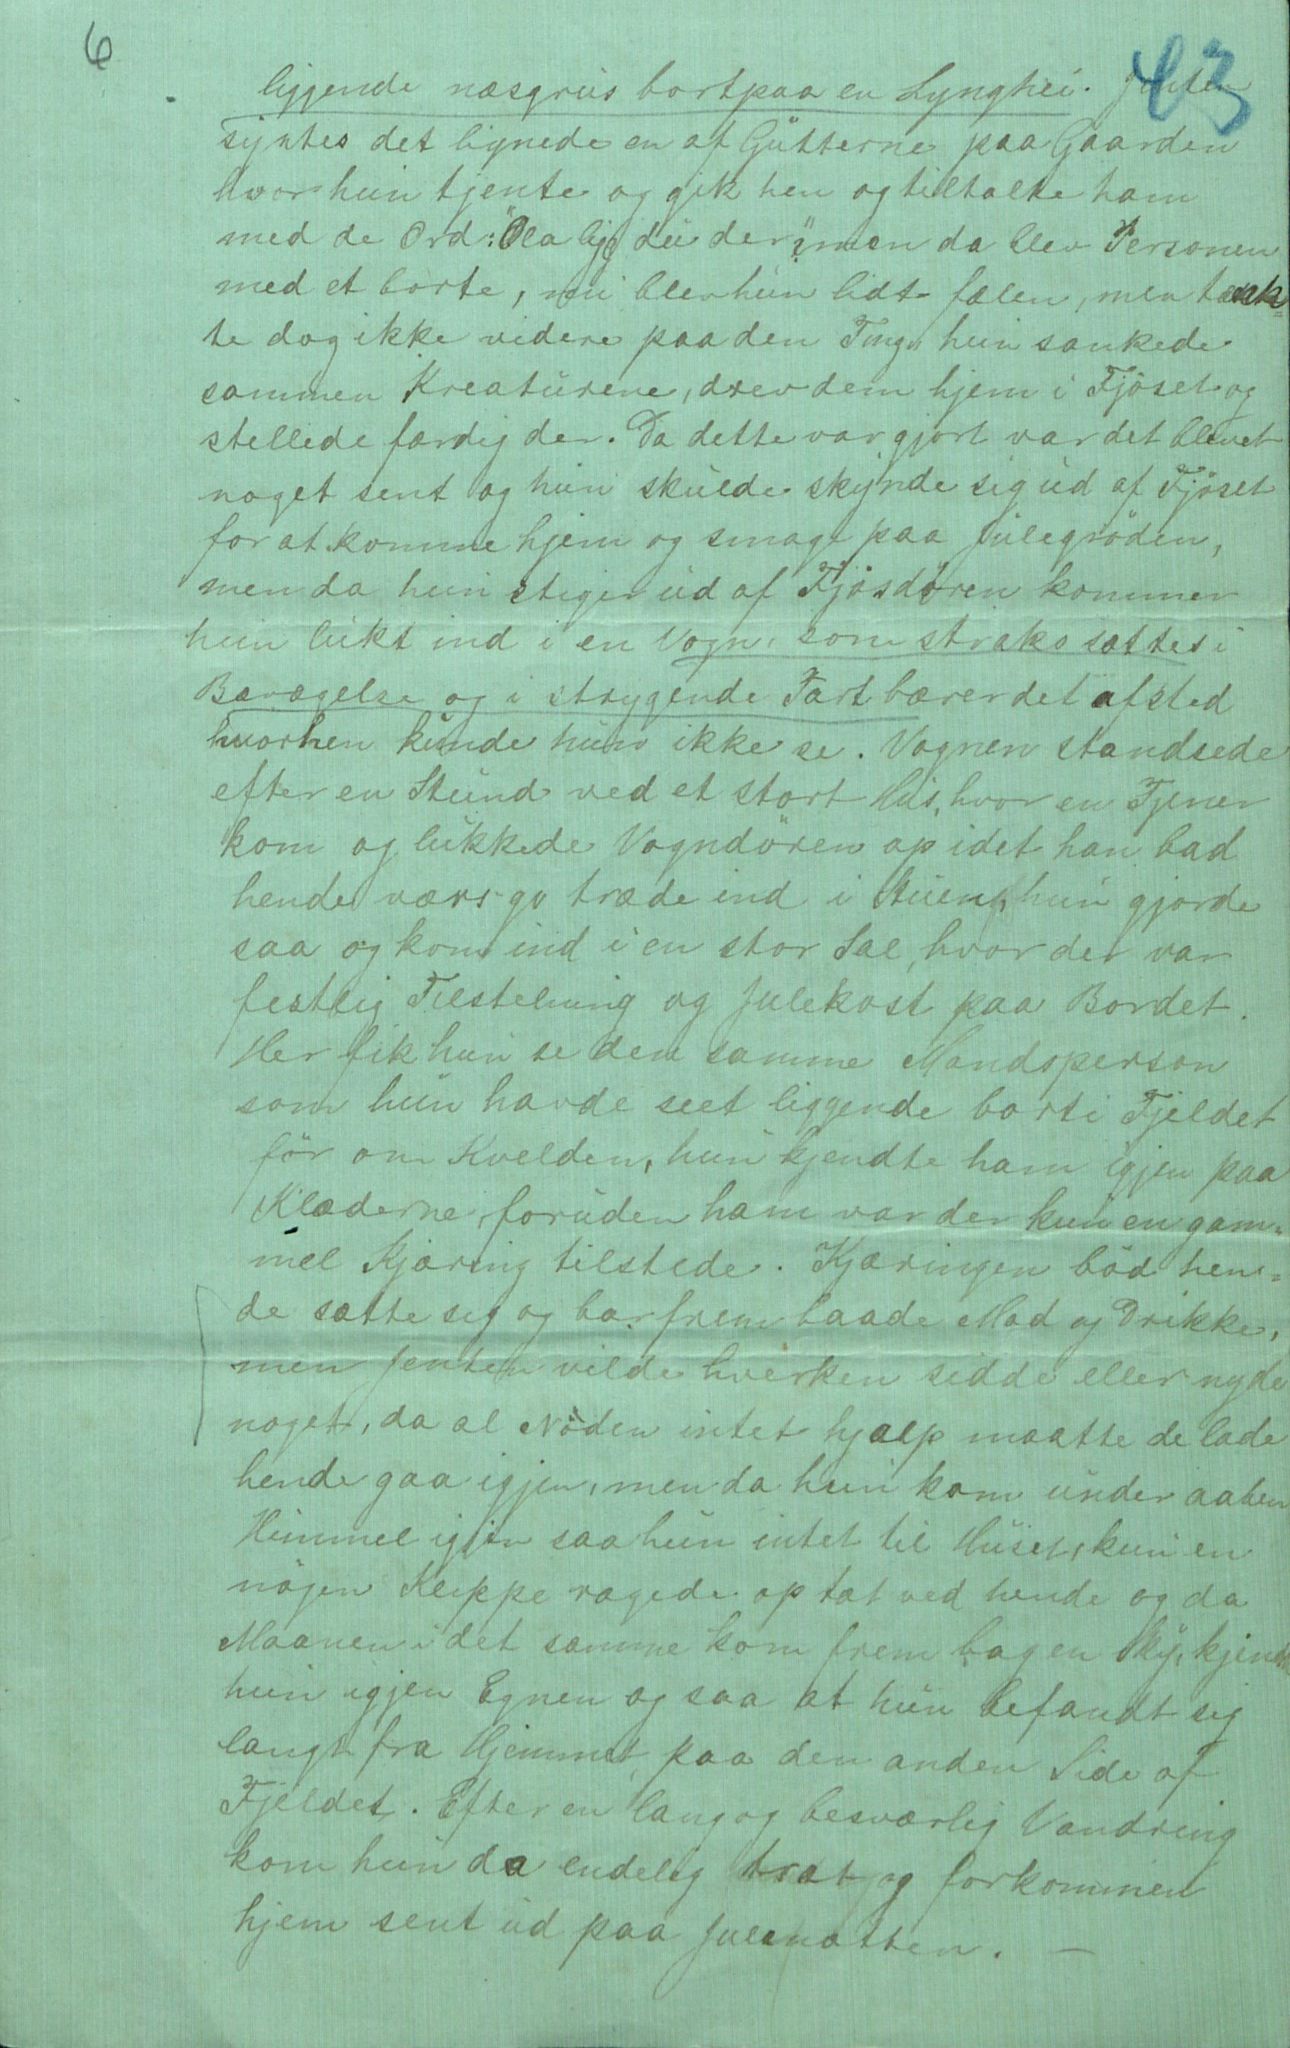 6
43
liggende næsgrus bortpaa en Lynghei. Jenten
syntes det lignede en af Gutterne paa Gaarden
hvor hun tjente og gik hen og tiltalte ham
med de Ord: "Ola ligg du der"? men da blev Personen
med et borte, nu blev hun lidt fælen, men tænk=
te dog ikke videre paa den Ting, hun sankede
sammen Kreaturene, drev dem hjem i Fjöset og
stellede færdig der. Da dette var gjort var det blevet
noget sent og hun skulde skynde sig ud af Fjöset
for at komme hjem og smage paa Julegröden,
men da hun stiger ud af Fjösdören kommer
hun lukt ind i en Vogn, som straks sættes i
Bevægelse og i strygende Fart bærer det afsted
hvorhen kunde hun ikke se. Vognen standsede
efter en Stund ved et stort Hus, hvor en Tjener
kom og lukkede Vogndören op idet han bad
hende værs go træde ind i Stuen, hun gjorde
saa og kom ind i en stor Sal, hvor der var
festlig Tilstelning og Julekost paa Bordet.
Her fik hun se den samme Mandsperson
som hun havde seet liggende bort i Fjeldet
för om Kvelden, hun kjendte ham igjen paa
Klæderne, foruden ham var der kun en gam=
mel Kjæring tilstede. Kjæringen böd hen=
de sætte sig og bar frem baade Mad og Drikke,
men Jenten vilde hverken sidde eller nyde
noget, da al Nöden intet hjalp maatte de lade
hende gaa igjen, men da hun kom under aaben
Himmel igjen saa hun intet til Huset, kun en
nögen Klippe ragede op tæt ved hende og da
Maanen i det samme kom frem bag en Sky, kjendte
hun igjen Egnen og saa at hun befandt sig
langt fra Hjemmet paa den anden Side af
Fjeldet. Efter en lang og besværlig Vandring
kom hun da endelig træt og forkommen
hjem sent ud paa Julenatten. —